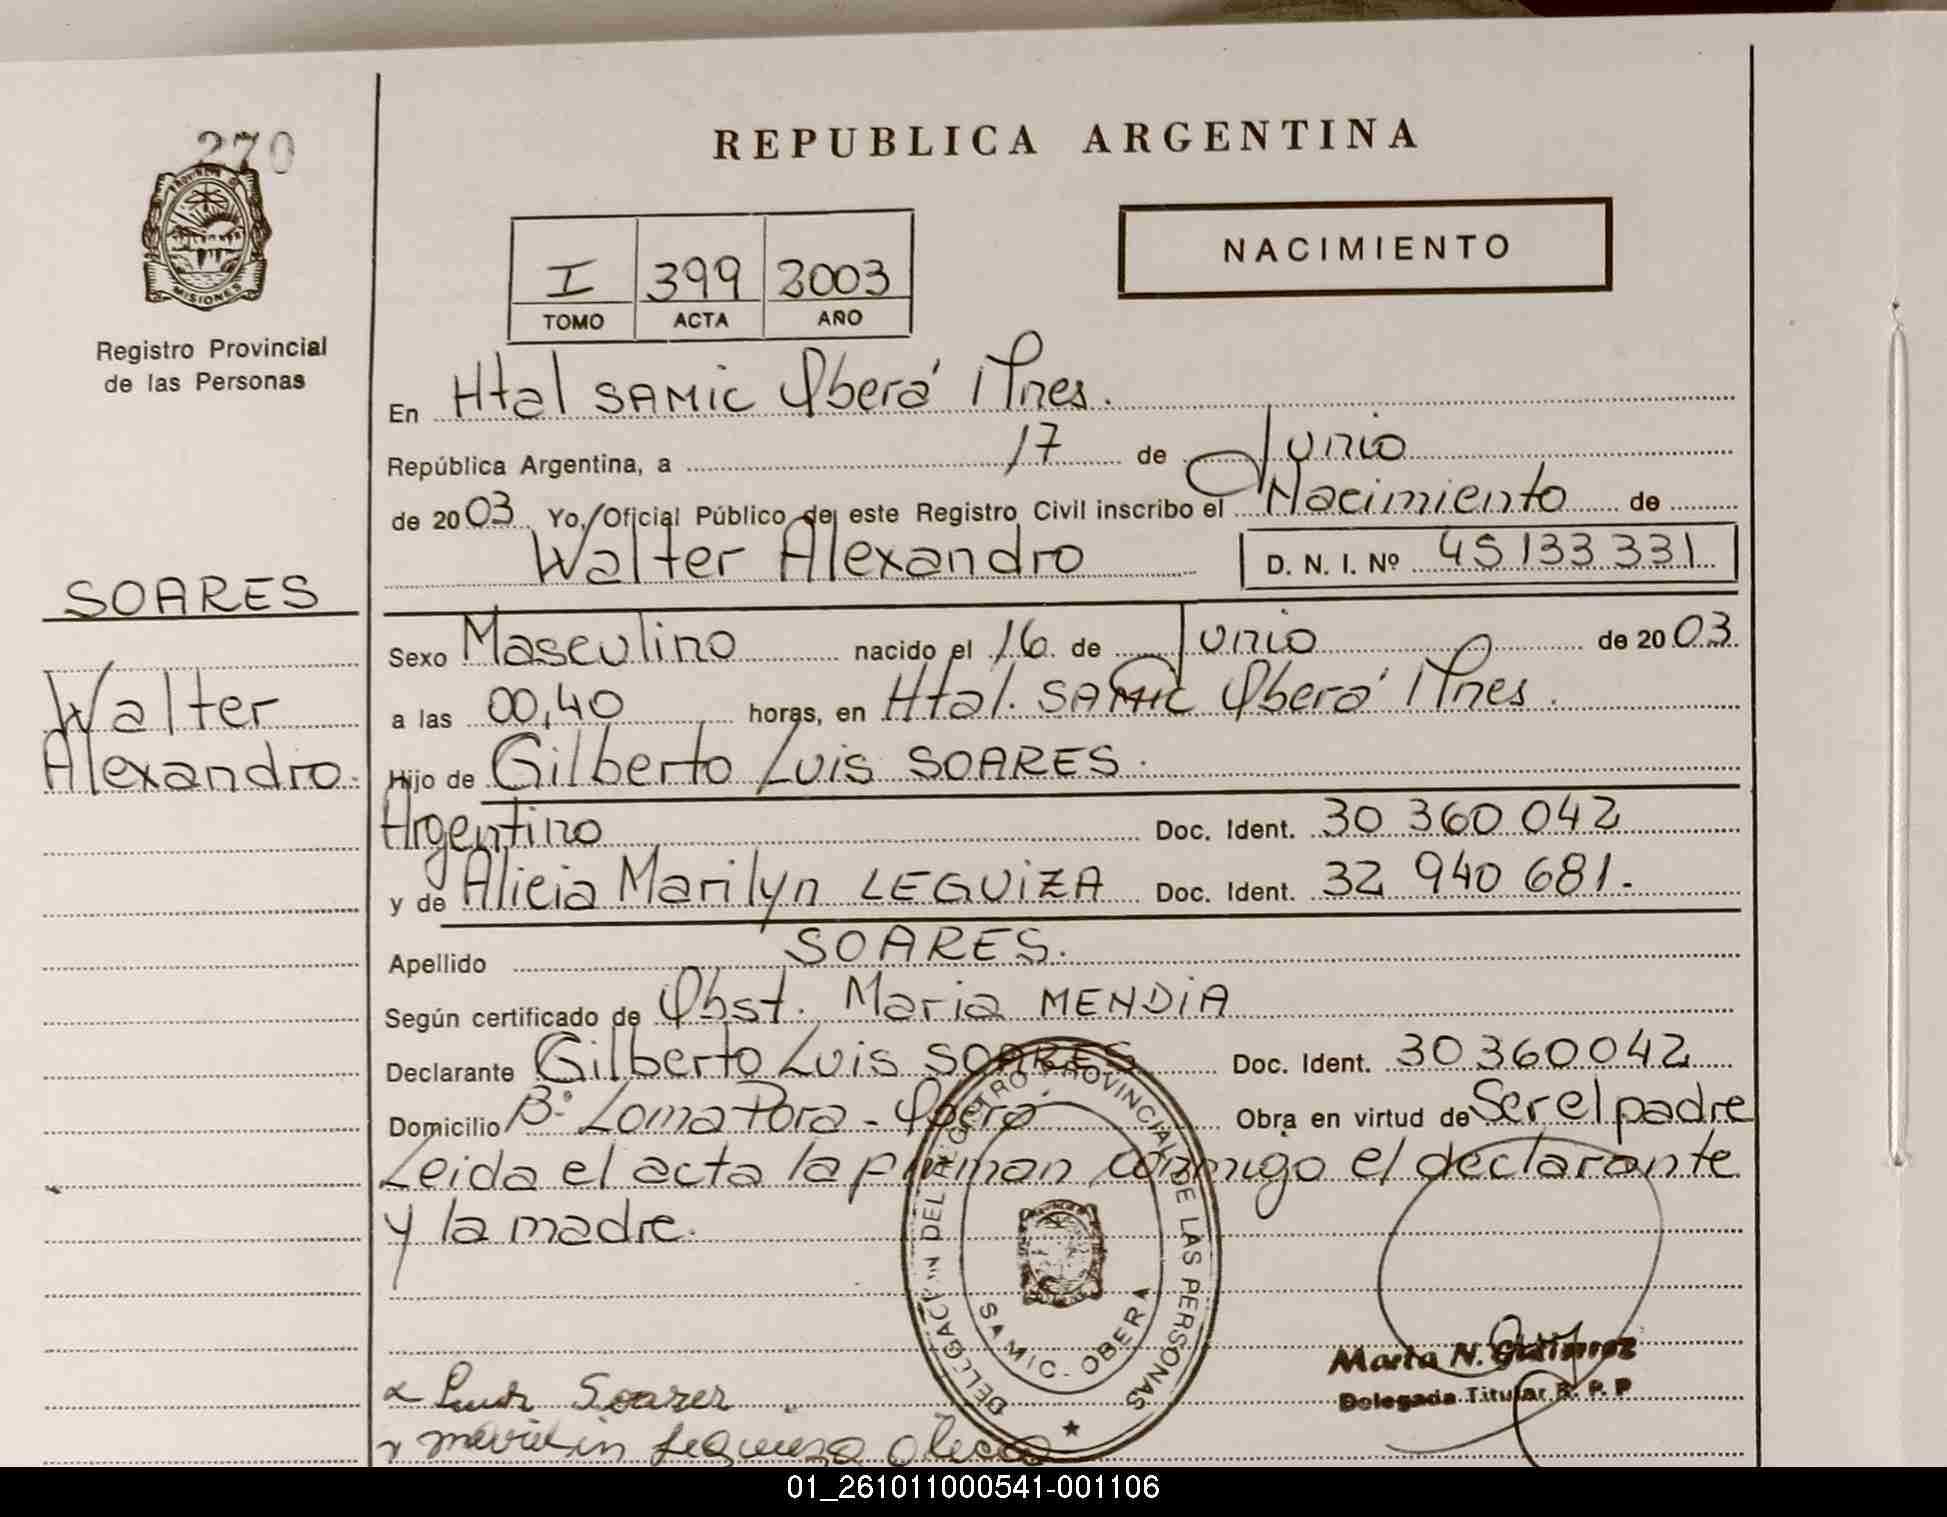 270
PROVINCIA D
MISIONES
Registro Provincial
de las Personas
REPUBLICA ARGENTINA
NACIMIENTO
I 399 2003
TOMO ACTA AÑO
En Htal SAMIC Oberá Mnes.
República Argentina, a 17 de Junio
de 2003 Yo, Oficial Público de este Registro Civil inscribo el Nacimiento de
Walter Alexandro D. N. I. Nº 45133331
SOARES
Walter
Alexandro.
Sexo Masculino nacido el 16 de Junio de 2003.
a las 00,40 horas, en Htal. SAMIC Oberá Mnes.
Hijo de Gilberto Luis SOARES.
Argentino Doc. Ident. 30 360 042
y de Alicia Marilyn LEGUIZA Doc. Ident. 32 940 681.
Apellido SOARES.
Según certificado de Obst. Maria MENDIA
Declarante Gilberto Luis SOARES Doc. Ident. 30360042
Domicilio Bº Loma Pora - Oberá Obra en virtud de Ser el padre
Leida el acta la firman conmigo el declarante
y la madre.
DELEGACION DEL REGISTRO PROVINCIAL DE LAS PERSONAS
SAMIC - OBERA
Marta N. Gutierrez
Delegada Titular R. P. P
Luis Soares
01_261011000541-001106